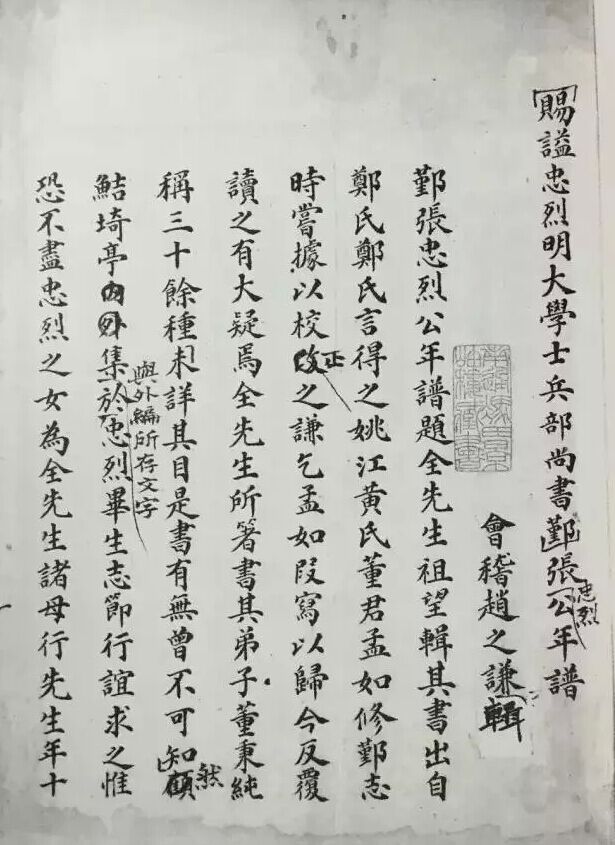 賜謚忠烈明大學士兵部尚書鄞張公年譜
忠烈
會稽趙之謙輯
鄞張忠烈公年譜題全先生祖望輯其書出自
鄭氏鄭氏言得之姚江黃氏董君孟如修鄞志
時嘗據以校改之謙乞孟如叚寫以歸今反覆
正
讀之有大疑焉全先生所箸書其弟子董秉純
稱三十餘種未詳其目是書有無曾不可知顧
然
鮚埼亭內外集於忠烈畢生志節行誼求之惟
與外編所存文字
恐不盡忠烈之女為全先生諸母行先生年十